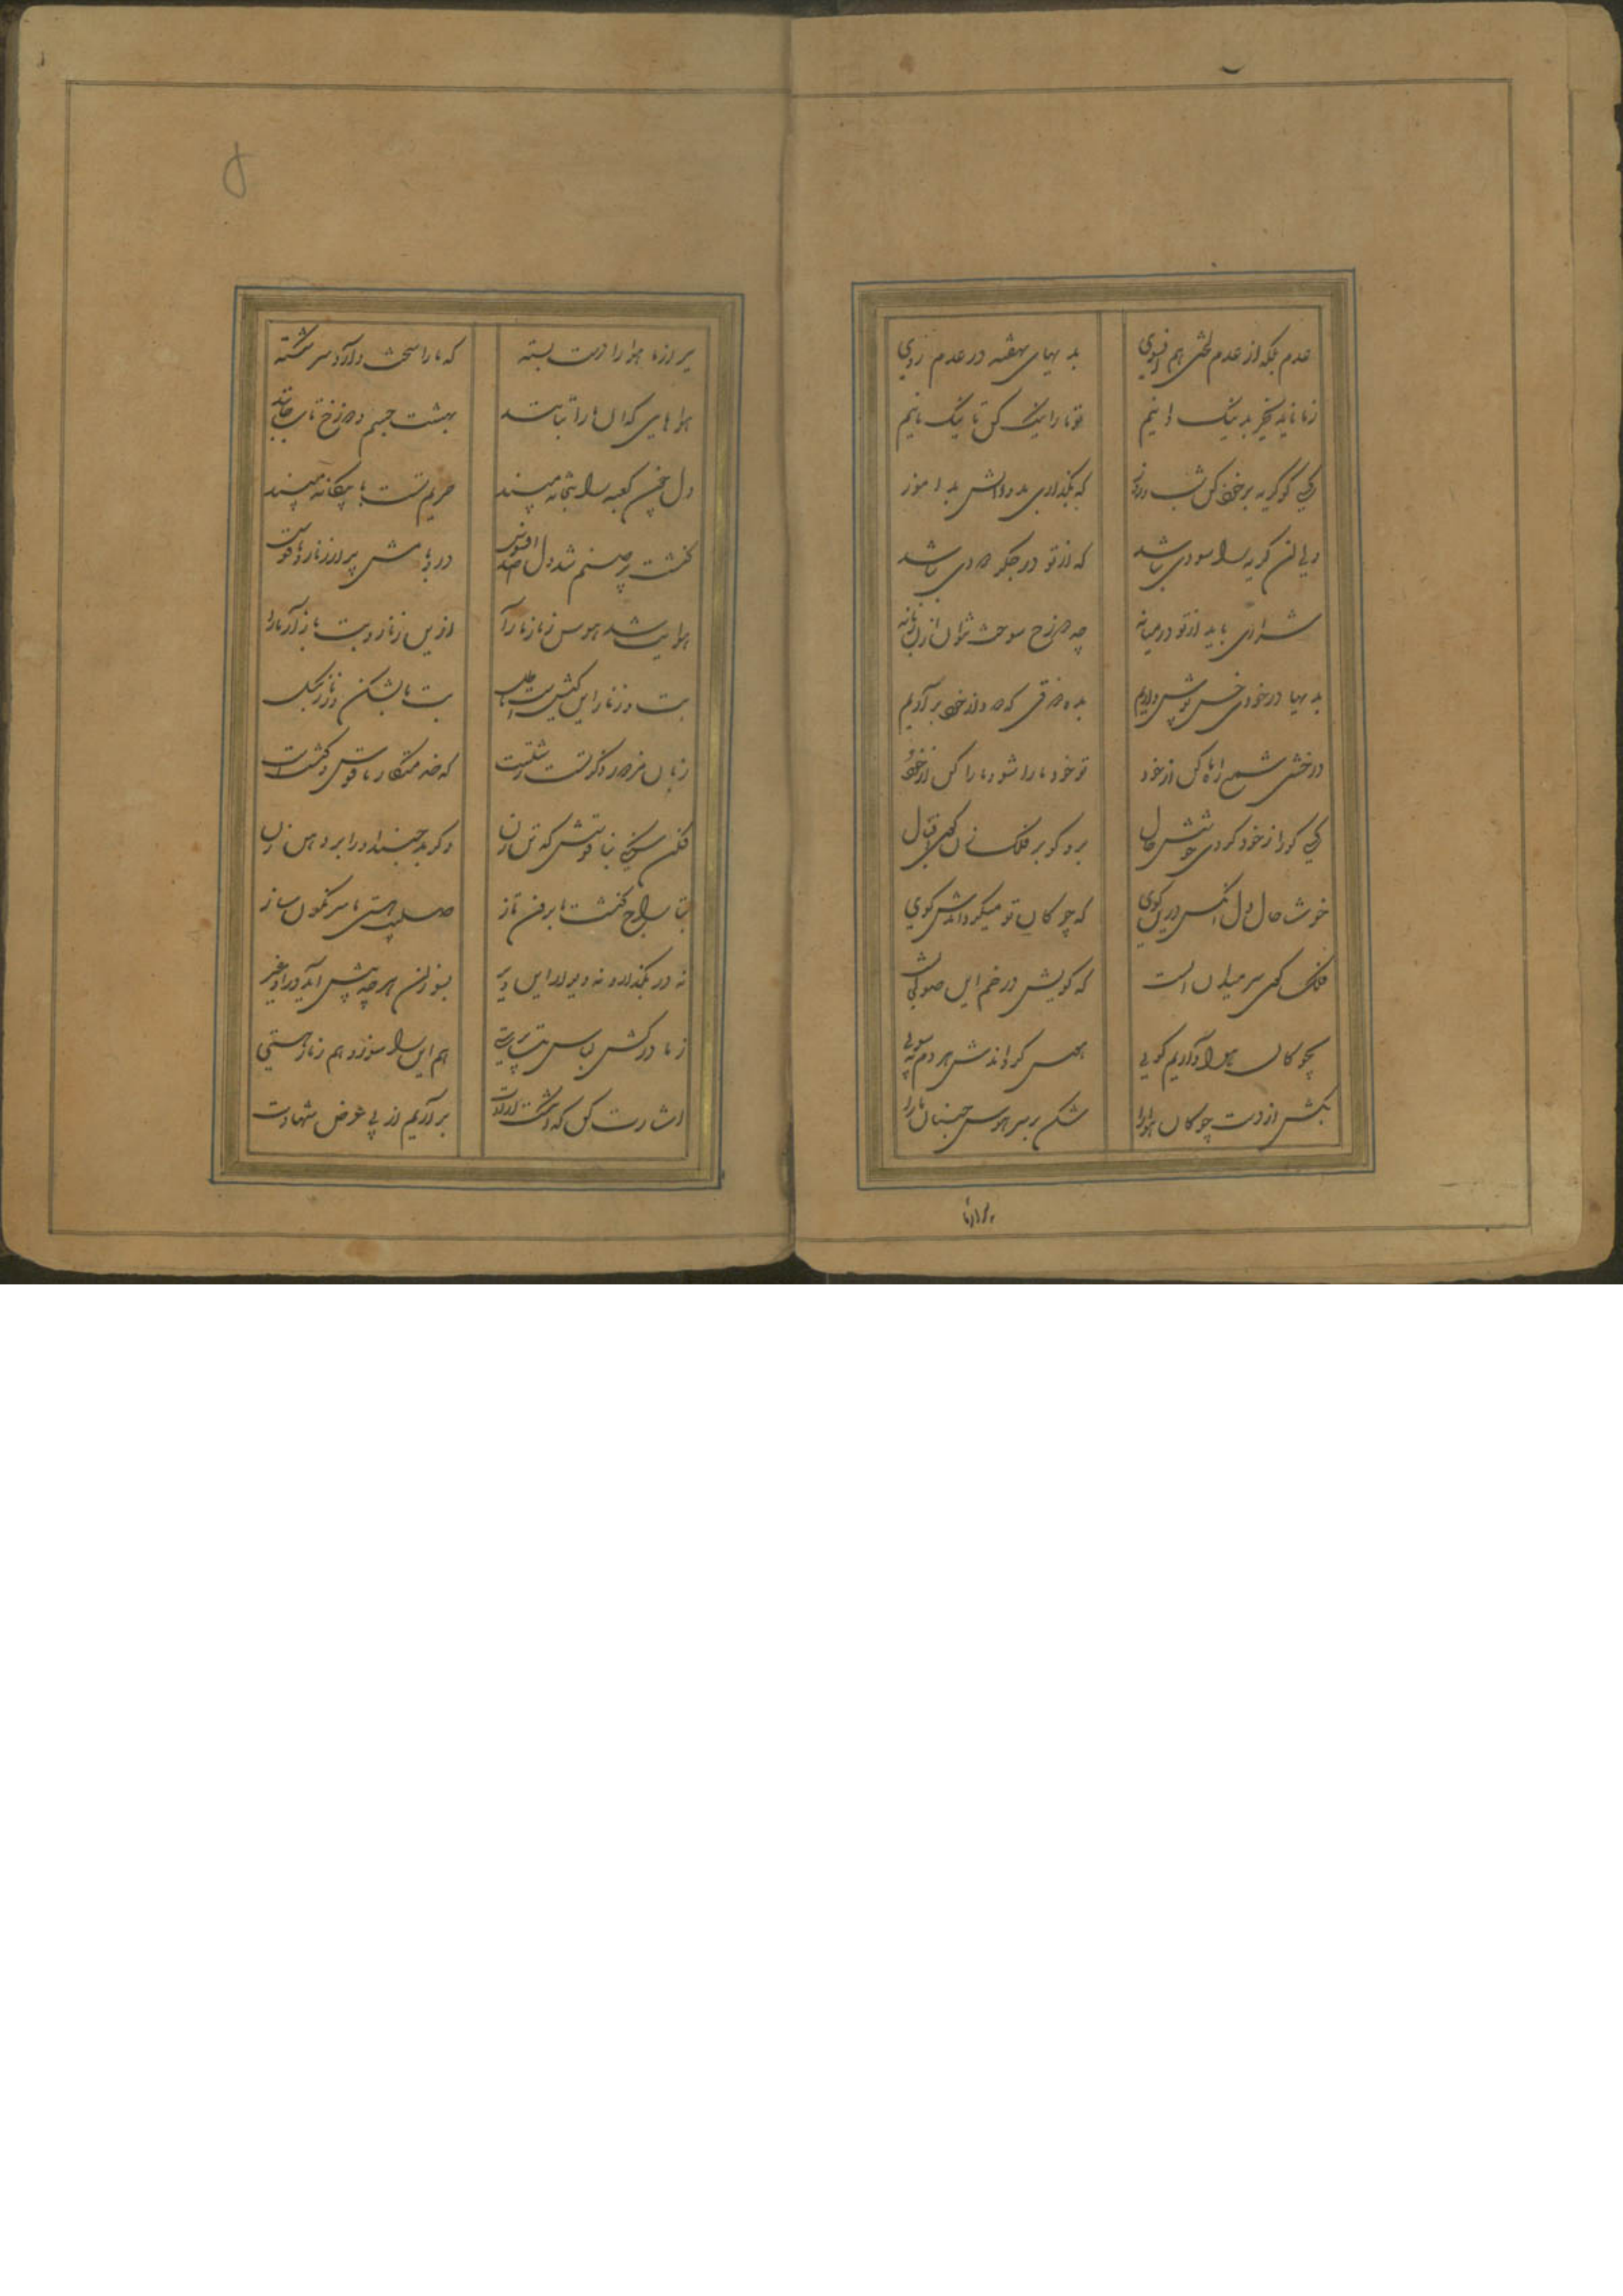 عدم بلکه از عدم لختی هم
بدیهای نهفته در عدم روی
ز ما ناید بجز بد نیک دانیم
تو ما را نیک کن تا نیک مانیم
کسی کو گریه بر خود کن شب و روز
که نگذاری بد و دانش بد آموز
زیان آن گریه را سودی نباشد
که از تو در جگر دودی نباشد
شراری باید از تو در میانه
چه دوزخ سوخت نتوان از زبانه
بدیها در خودی خس پوش داریم
بده برقی که دود از خود برآریم
درخشی شمع راه ما کن از خود
تو خود ما را شو و ما را کن از خود
کسی کورا ز خود کردی خوشش حال
برو گو بر فلک زن کوس اقبال
خوشا حال دل آنکس درین کوی
که چوگان تو میگرداندش گوی
فلک گوی سر میدان آنست
که گویش در خم این صولجانست
بچوگان هوا داریم گویی
هوس گرداندش هر دم بسویی
بکش از دست چوگان هوا را
شکن بر سر هوس جنبان ما را
بر از ما
بر از ما هوا را دست بسته
که ما را سخت دارد سر شکسته
بهشت جسم دوزخ تاب
دل چون کعبه را بتخانه مپسند
حریم تست با بیگانه مپسند
کنشت پر صنم شد دل صد افسوس
در و بامش پر از زنار و ناقوس
هوا بت شد هوس زنار ما را
ازین زنار و بت باز آر ما را
بت و زنار این کیش است
بت ما بشکن و زنار بگسل
زبان مزدور ذکر تست زشتست
که خدمتکار ناقوس کنشتست
فکن سنگی بناقوسش که تن زن
وگر بد جنبد او را بر دهن زن
بتاراج کنشت ما برون تاز
صلیب هستی ما سرنگون ساز
نه در بگذار و نه دیوار این دیر
بسوزان هر چه پیش آید در او غیر
ز ما درکش لباس بت پرستی
هم این را سوز و هم زنار هستی
اشارت کن که انگشت ارادت
برآریم از پی عرض شهادت